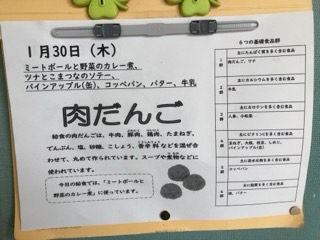 1月30日(木)
ミートボールと野菜のカレー煮、
ツナとこまつなのソテー、
パインアップル(缶)、コッペパン、バター、牛乳
肉だんご
給食の肉だんごは、牛肉、豚肉、鶏肉、たまねぎ、
でんぷん、塩、砂糖、こしょう、香辛料などを混ぜ合
わせて、丸めて作られています。スープや煮物などに
使われています。
今日の給食では、「ミートボールと
野菜のカレー煮」に使っています。
6つの基礎食品群
1群
主にたんぱく質を多く含む食品
肉だんご、ツナ
2群
主にカルシウムを多く含む食品
牛乳
3群
主にカロテンを多く含む食品
人参、小松菜
4群
主にビタミンCを多く含む食品
玉ねぎ、大根、枝豆、しめじ、
パインアップル(缶)
5群
主に炭水化物を多く含む食品
コッペパン
6群
主に脂質を多く含む食品
油、バター